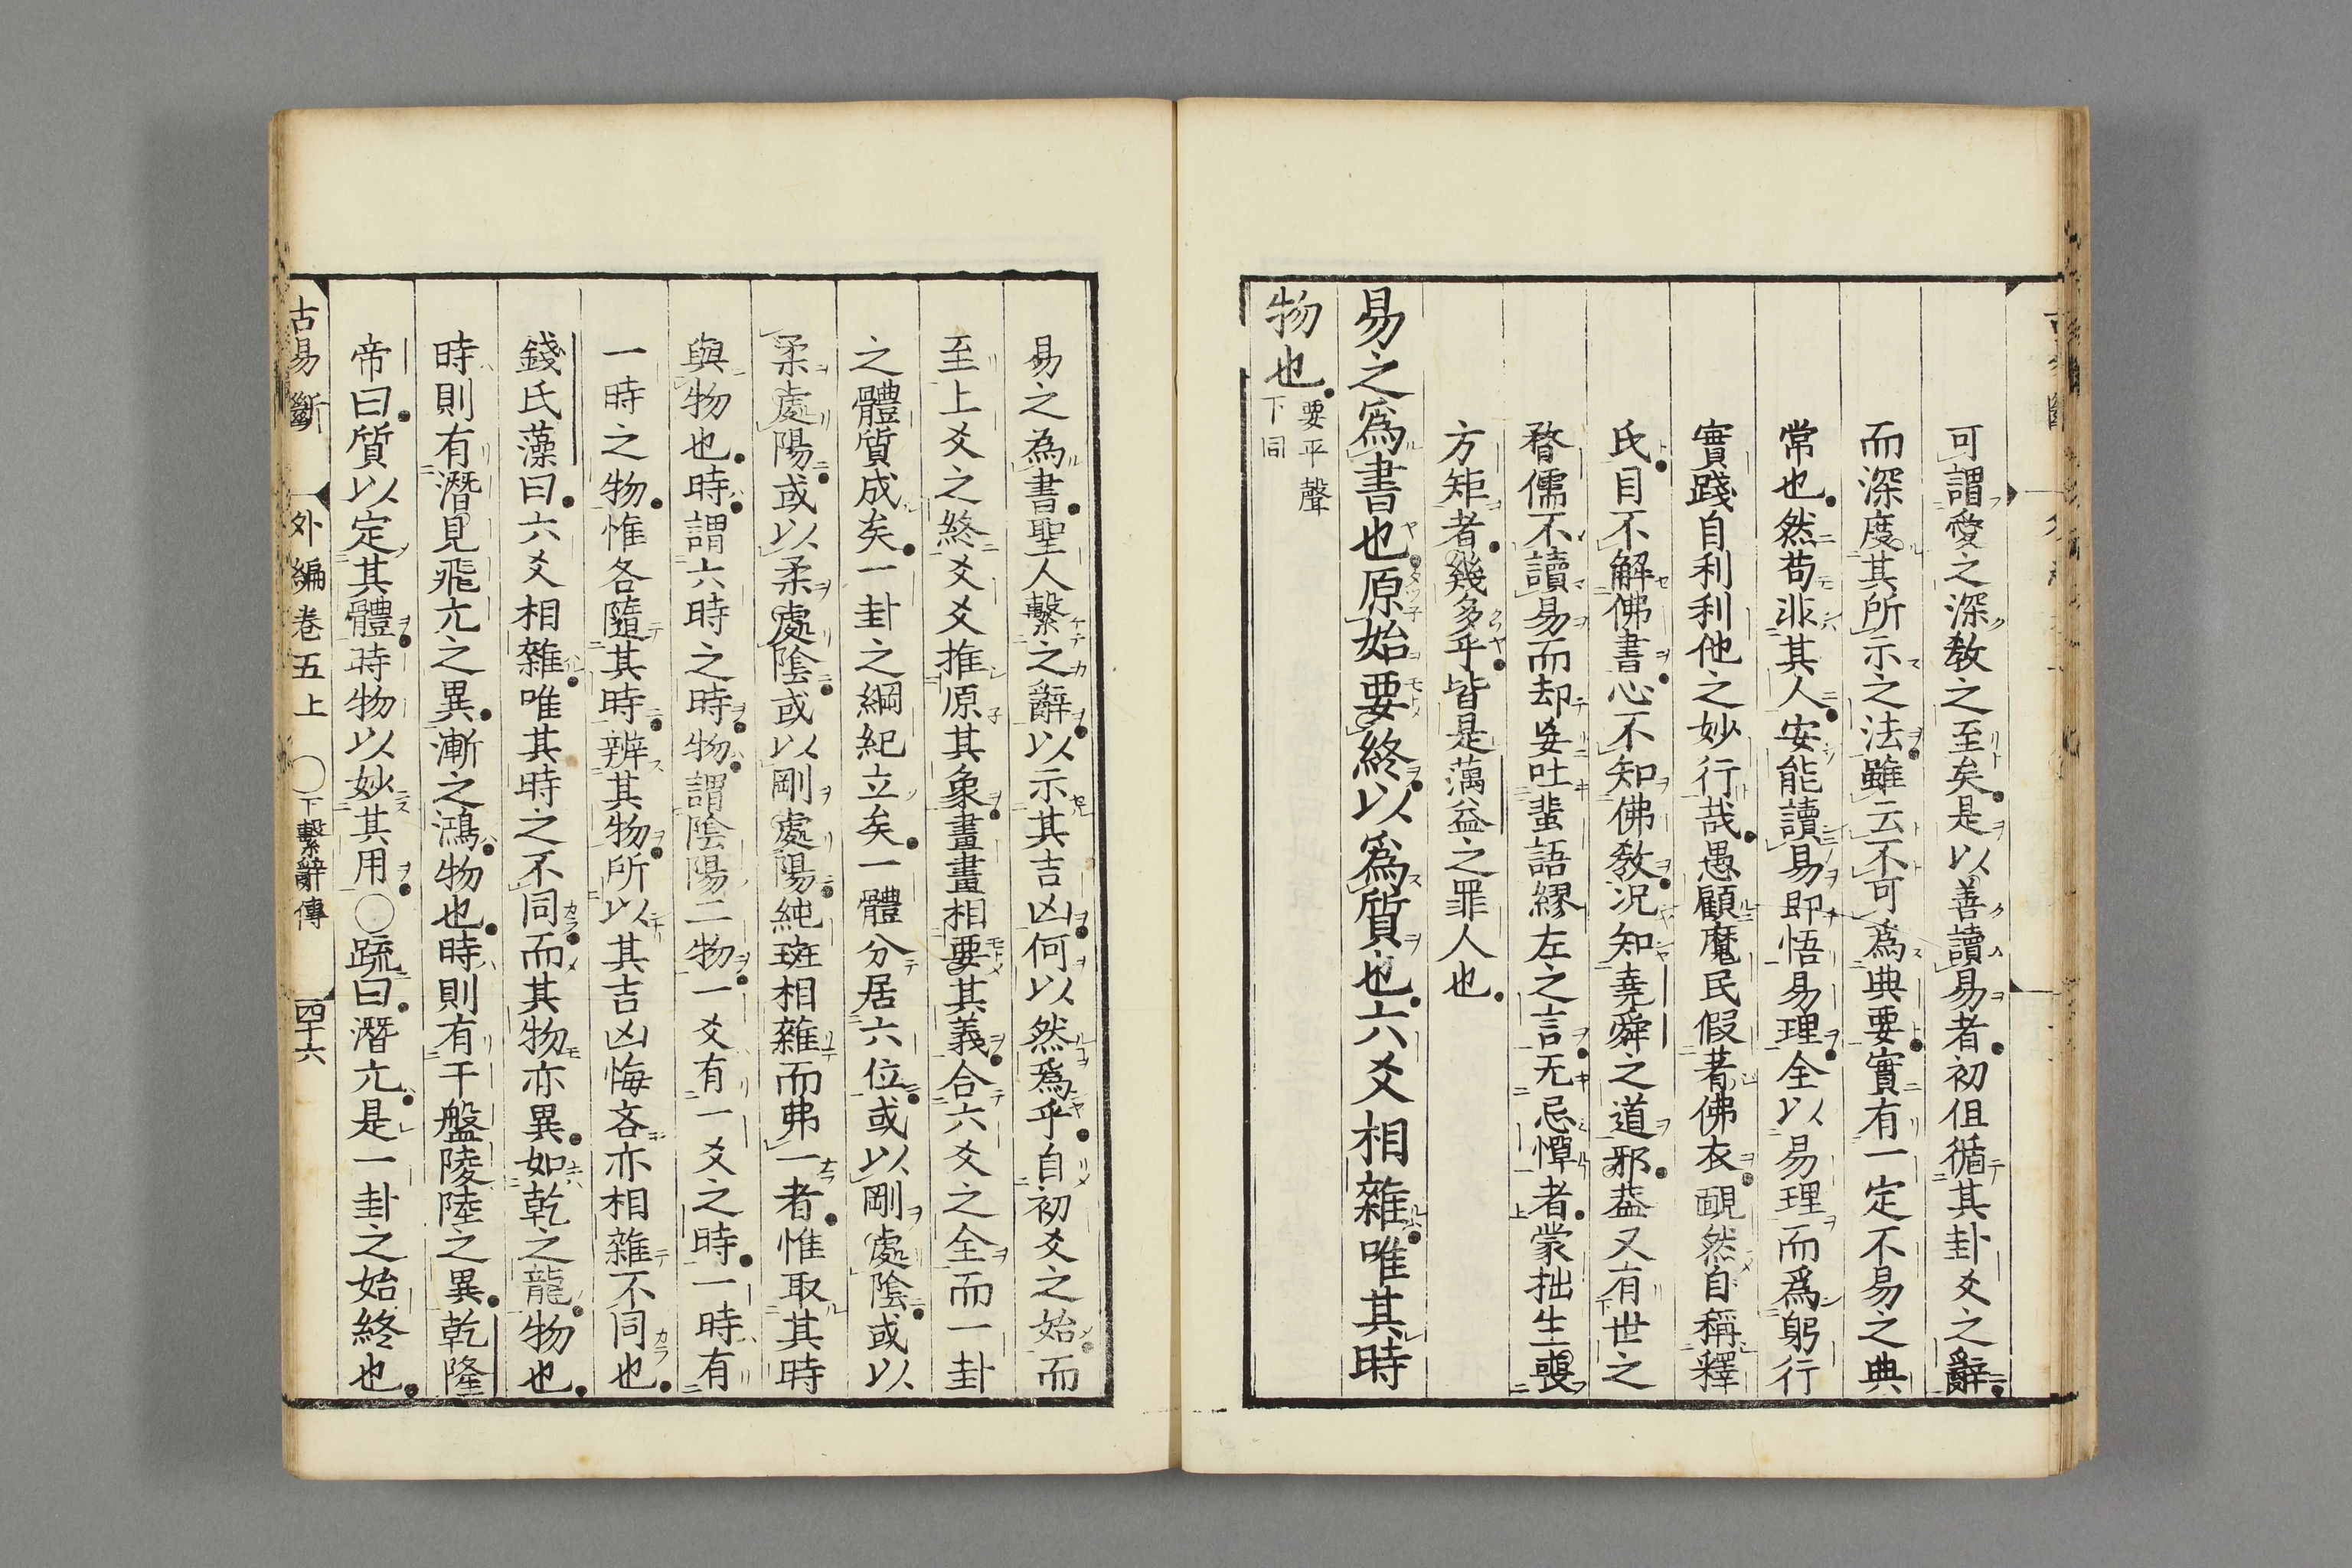 可謂愛之深敎之至矣是以善讀易者初伹循其卦爻之辭
而深度其所示之法雖云不可爲典要實有一定不易之典
常也然苟非其人安能讀易即悟易理全以易理而爲躬行
實踐自利利他之妙行哉愚顧魔民假著佛衣靦然自稱釋
氏目不解佛書心不知佛敎況知堯舜之道邪葢又有世之
瞀儒不讀易而却妄吐蜚語繆左之言无忌憚者蒙拙生䘮
方矩者幾多乎皆是澫益之罪人也
易之爲書也原始要終以爲質也六爻相雜唯其時
物也
要平聲
下同
易之為書聖人繫之辭以示其吉凶何以然爲乎自初爻之始而
至上爻之終爻爻推原其象畫畫相要其義合六爻之全而一卦
之體質成矣一卦之綱紀立矣一體分居六位或以剛處陰或以
柔處陽或以柔處陰或以剛處陽純斑相雜而弗一者惟取其時
與物也時謂六時之時物謂陰陽二物一爻有一爻之時一時有
一時之物惟各隨其時辨其物所以其吉凶悔吝亦相雜不同也
錢氏藻曰六爻相雜唯其時之不同而其物亦異如乾之龍物也
時則有潛見飛亢之異漸之鴻物也時則有干盤陵陸之異乾隆
帝曰質以定其體時物以妙其用○疏曰潛亢是一卦之始終也
古易斷 外編卷五上 ○下繫辭傳 四十六